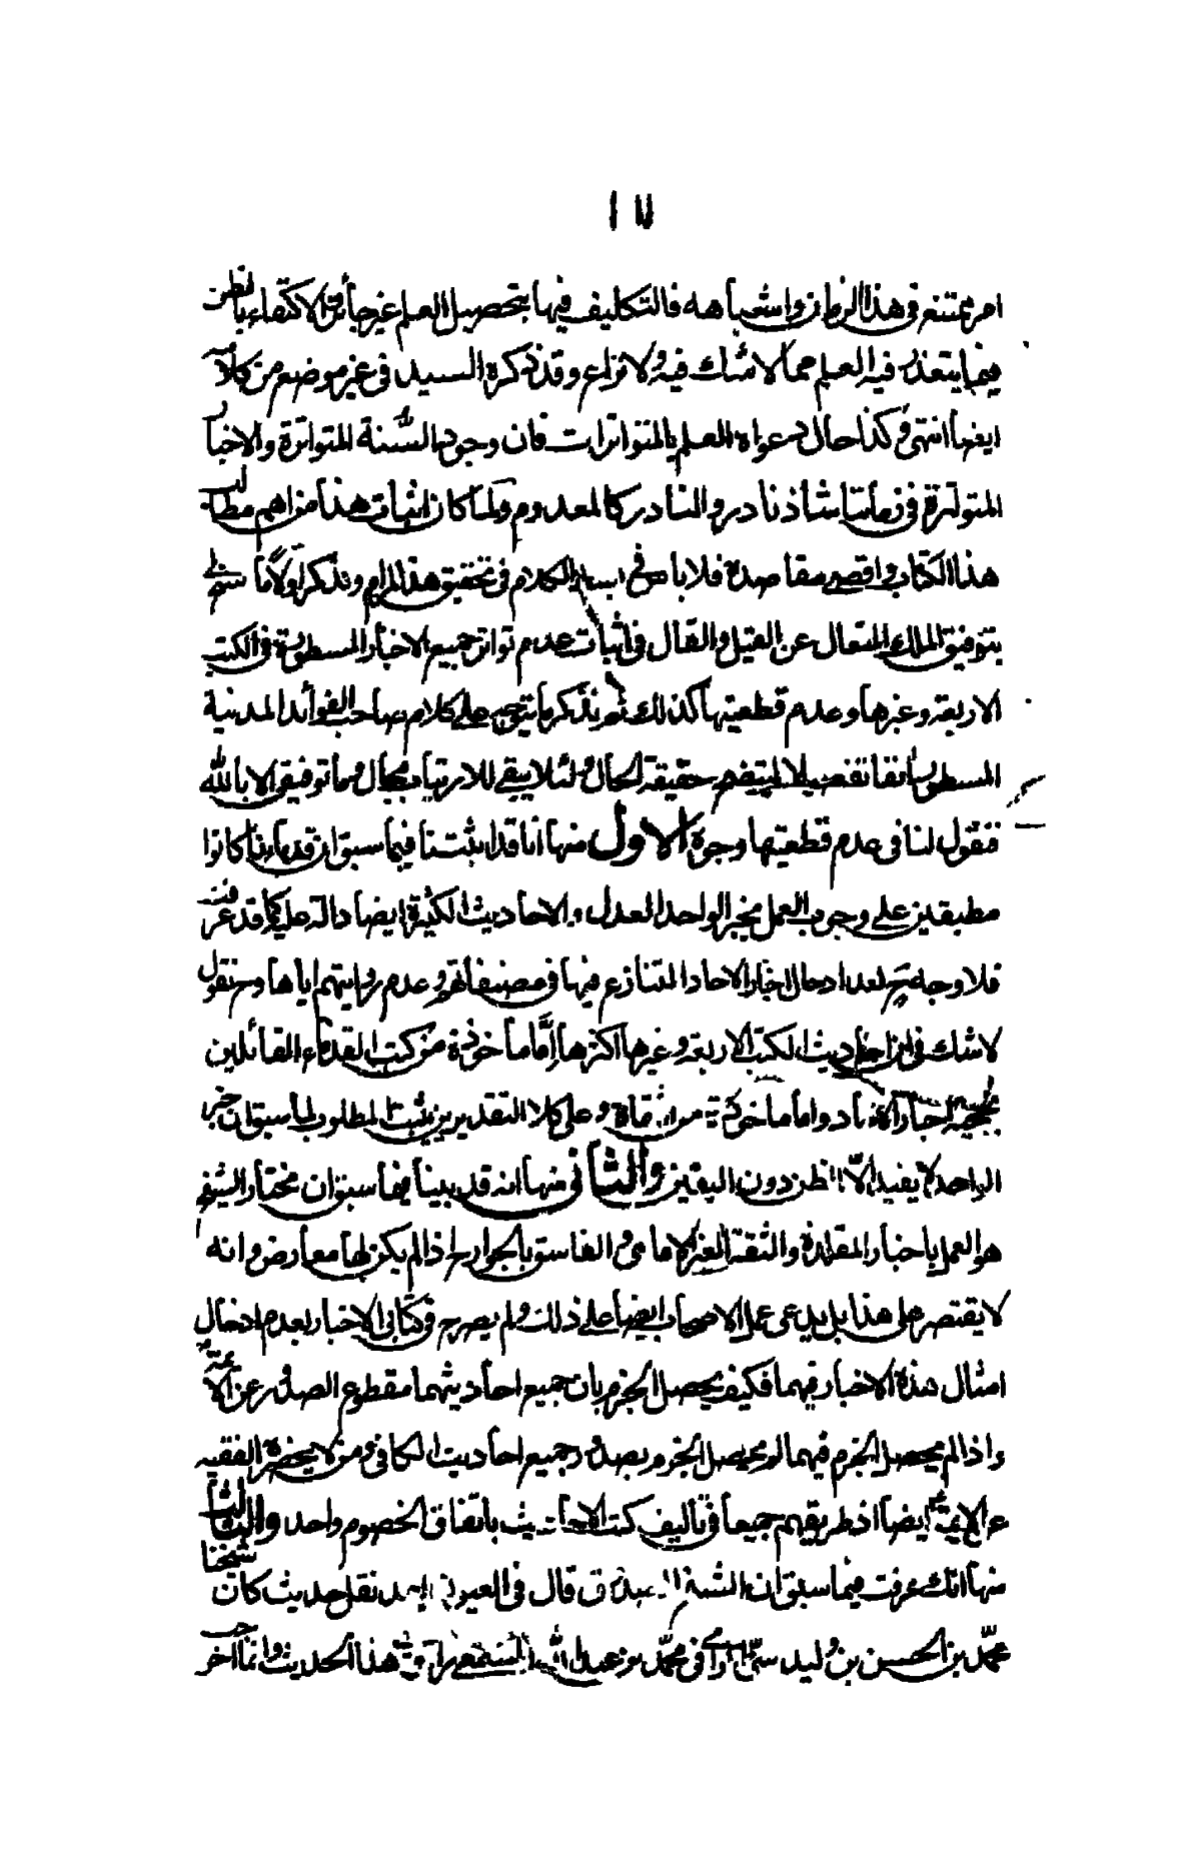 ١٧
امر ممتنع في هذا الزمان واشباهه فالتكليف فيها بتحصيل العلم غير جائز والاكتفاء بالظن
فيما يتعذر فيه العلم مما لا شك فيه ولا نزاع وقد ذكره السيد في غير موضع من كلامه
ايضا انتهى وكذا حال دعواه العلم بالمتواترات فان وجود السنة المتواترة والاخبار
المتواترة في زماننا شاذ نادر والنادر كالمعدوم ولما كان اثبات هذا من اهم مطالب
هذا الكتاب واقصى مقاصده فلا باس ببسط الكلام في تحقيق هذا المرام ونذكر اولا ما
بتوفيق الملك المتعال عن القيل والقال في اثبات عدم تواتر جميع الاخبار المسطورة في الكتب
الاربعة وغيرها وعدم قطعيتها كذلك ثم نذكر ما يتوجه على كلام صاحب الفوائد المدنية
المسطور سابقا تفصيلا ليتضح حقيقة الحال ولئلا يبقى للارتياب مجال وما توفيقي الا بالله
فنقول لنا في عدم قطعيتها وجوه الاول منها انا قد اثبتنا فيما سبق ان قدماءنا كانوا
مطبقين على وجوب العمل بخبر الواحد العدل والاحاديث الكثيرة ايضا دالة عليه كما قد عرفت
فلا وجه لعدم ادخال اخبار الاحاد المتنازع فيها في مصنفاتهم وعدم روايتهم اياها وح نقول
لا شك في ان احاديث الكتب الاربعة وغيرها اكثرها اما ماخوذة من كتب القدماء القائلين
بحجية اخبار الآحاد واما ماخوذة من الثقات وعلى كلا التقديرين يثبت المطلوب لما سبق ان خبر
الواحد لا يفيد الا الظن دون اليقين والثاني منها انه قد بينا فيما سبق ان مختار الشيخ
هو العمل باخبار المقلدة والثقة الغير الامامي والفاسق بالجوارح اذا لم يكن لها معارض وانه
لا يقتصر على هذا بل يدعى عمل الاصحاب ايضا على ذلك ولم يصرح في كتابي الاخبار بعدم ادخال
امثال هذه الاخبار فيهما فكيف يحصل الجزم بان جميع احاديثهما مقطوع الصدور عن الائمة
واذا لم يحصل الجزم فيهما لم يحصل الجزم بصدور جميع احاديث الكافي ومن لا يحضره الفقيه
عن الائمة ايضا اذ طريقهم جميعا في تاليف كتب الاحاديث باتفاق الخصوم واحد والثالث
منها انك عرفت فيما سبق ان الشيخ الصدوق قال في العيون بعد نقل حديث كان شيخنا
محمد بن الحسن بن وليد سيئ الراي في محمد بن عبد الله المسمعي راوي هذا الحديث وانما اخر